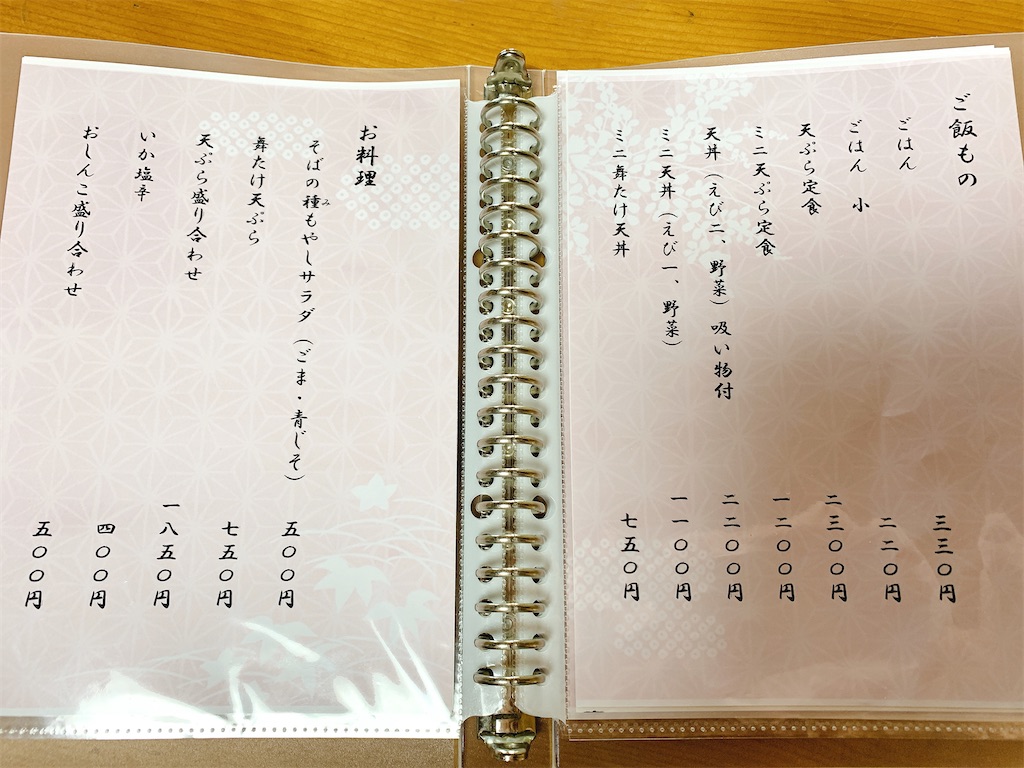 ご飯もの
ごはん
三三〇円
ごはん 小
二二〇円
天ぷら定食
二三〇〇円
ミニ天ぷら定食
一二〇〇円
天丼(えび二、野菜)吸い物付
二二〇〇円
ミニ天丼(えび一、野菜)
一一〇〇円
ミニ舞たけ天丼
七五〇円
お料理
そばの種もやしサラダ(ごま・青じそ)
み
五〇〇円
舞たけ天ぷら
七五〇円
天ぷら盛り合わせ
一八五〇円
いか塩辛
四〇〇円
おしんこ盛り合わせ
五〇〇円